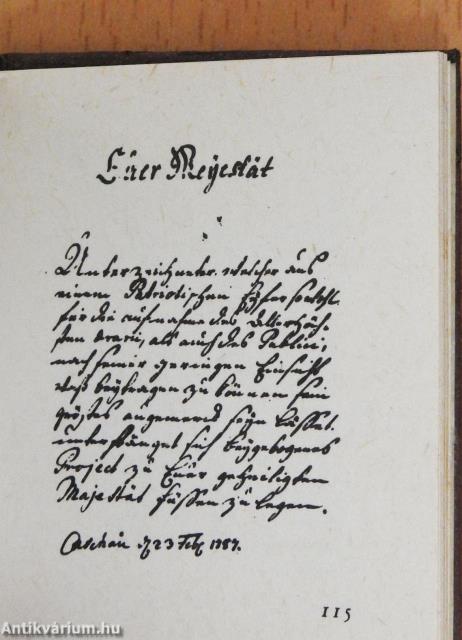 Eüer Meyestät
Unterzeichneter, welcher aus
einem Patriotischen Eyfer sowohl
für die aufnahme des Allerhöch-
sten ærarii, als auch des Publici,
nach seiner geringen Einsicht
was beytragen zu können sein
größtes augenmerck seyn lässet.
unterfanget sich beygebogenes
Project zu Eüer geheiligten
Majestät füssen zu legen.
Caschau 23 Feb 1787.
115
Antikvárium.hu